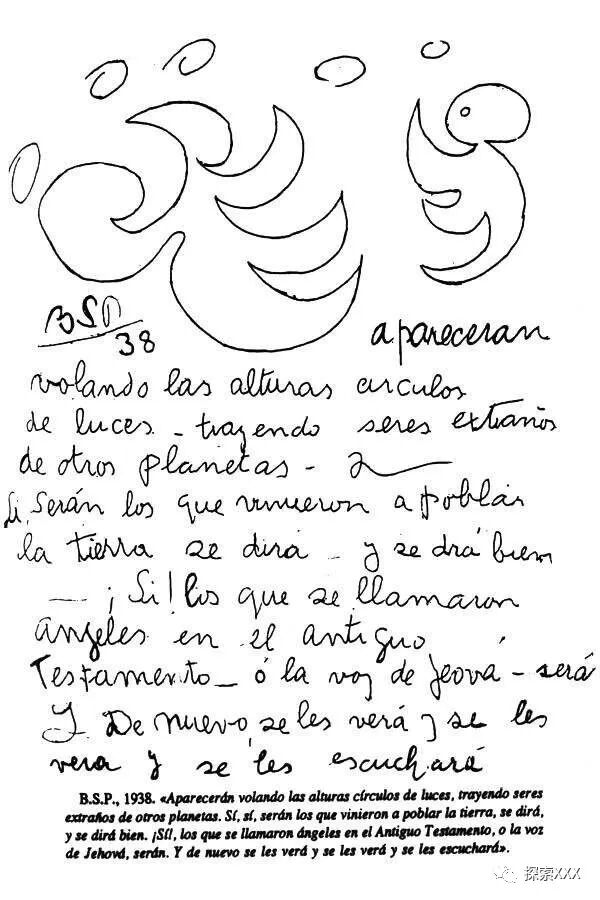 BSP
38
apareceran
volando las alturas circulos
de luces - trayendo seres extraños
de otros planetas -
Si, serán los que vinieron a poblar
la tierra se dira - y se dirá bien
— ¡Si! los que se llamaron
ángeles en el antiguo
Testamento - ó la voz de Jeová - será
Y De nuevo se les verá y se les
vera y se les escuchará
B.S.P., 1938. «Aparecerán volando las alturas círculos de luces, trayendo seres
extraños de otros planetas. Sí, sí, serán los que vinieron a poblar la tierra, se dirá,
y se dirá bien. ¡Sí!, los que se llamaron ángeles en el Antiguo Testamento, o la voz
de Jehová, serán. Y de nuevo se les verá y se les verá y se les escuchará».
探索XXX